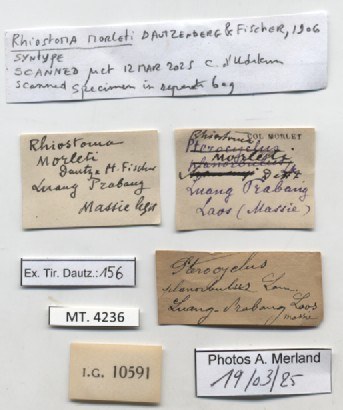 Rhiostoma Morleti Dautzenberg & Fischer, 1906
Syntype
Scanned µct 12 Mar 2025 C. d'Udekem
Scanned specimen in separate bag
Rhiostoma
Morleti
Dautz. H. Fischer
Luang Prabang
Massie leg.
COL. MORLET
Rhiostoma
Pterocyclus
Morleti
Luang Prabang
Laos (Massie)
Ex. Tir. Dautz.: 156
MT. 4236
I.G. 10591
Pterocyclus
planorbulus Lam.
Luang-Prabang Laos
Photos A. Merland
19/03/25